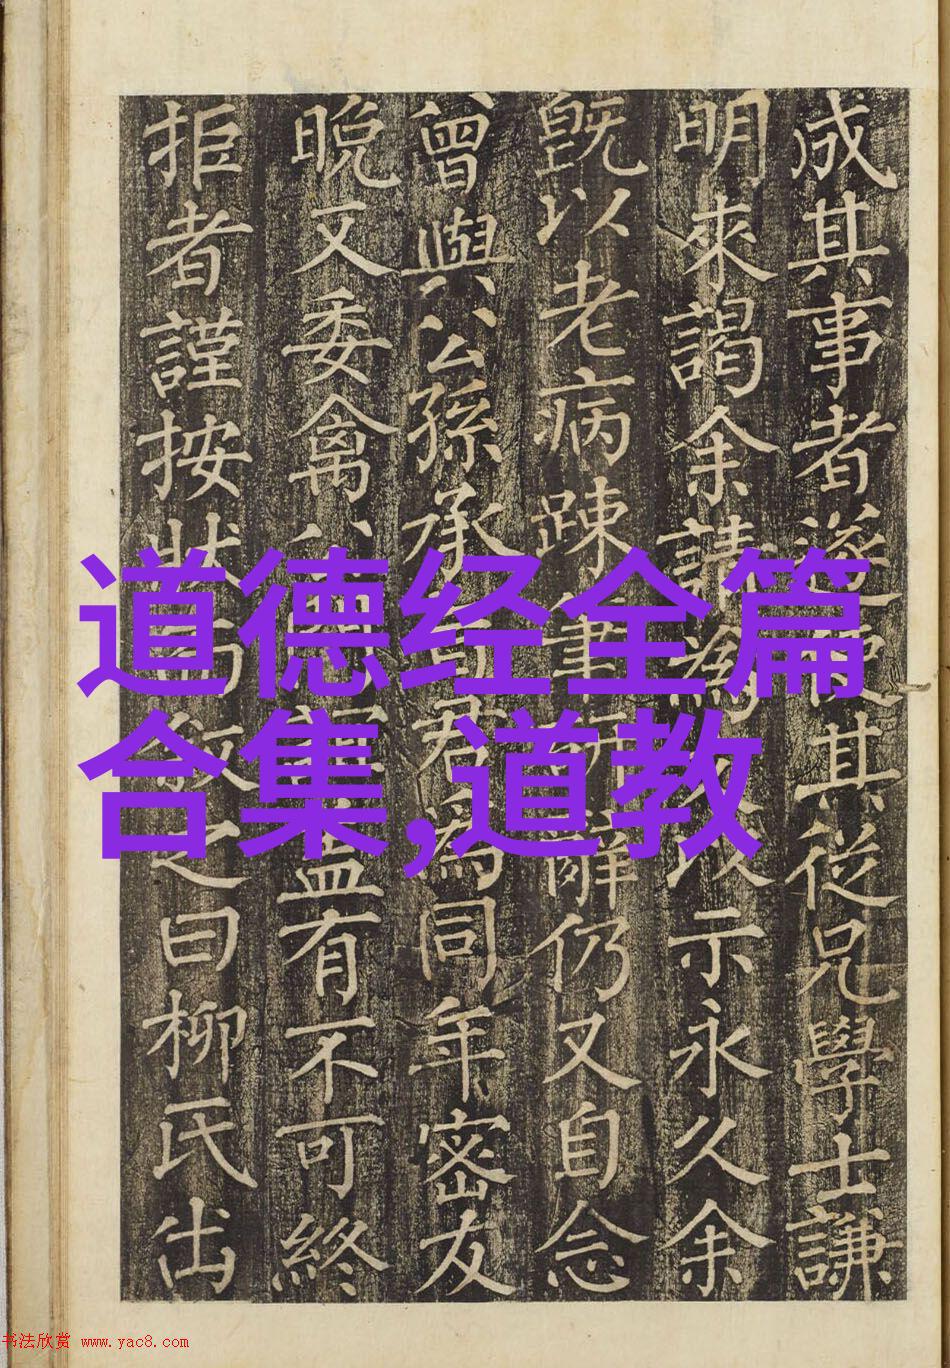 成其事者遂使其從兄學士謙
明來謁余請為文以示永久余
既以老病踈筆研辭仍又自念
曾與公孫承旨君為同年密友
晚又委禽公盖有不可終
拒者謹按狀而敘之曰柳氏出
道德经全篇
合集,道教
书法欣赏 www.yac8.com